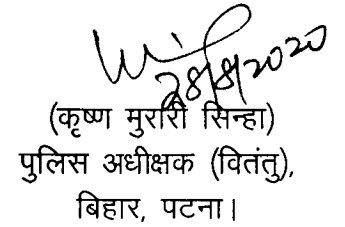 28/8/2020
(कृष्ण मुरारी सिन्हा)
पुलिस अधीक्षक (वितंतु),
बिहार, पटना।